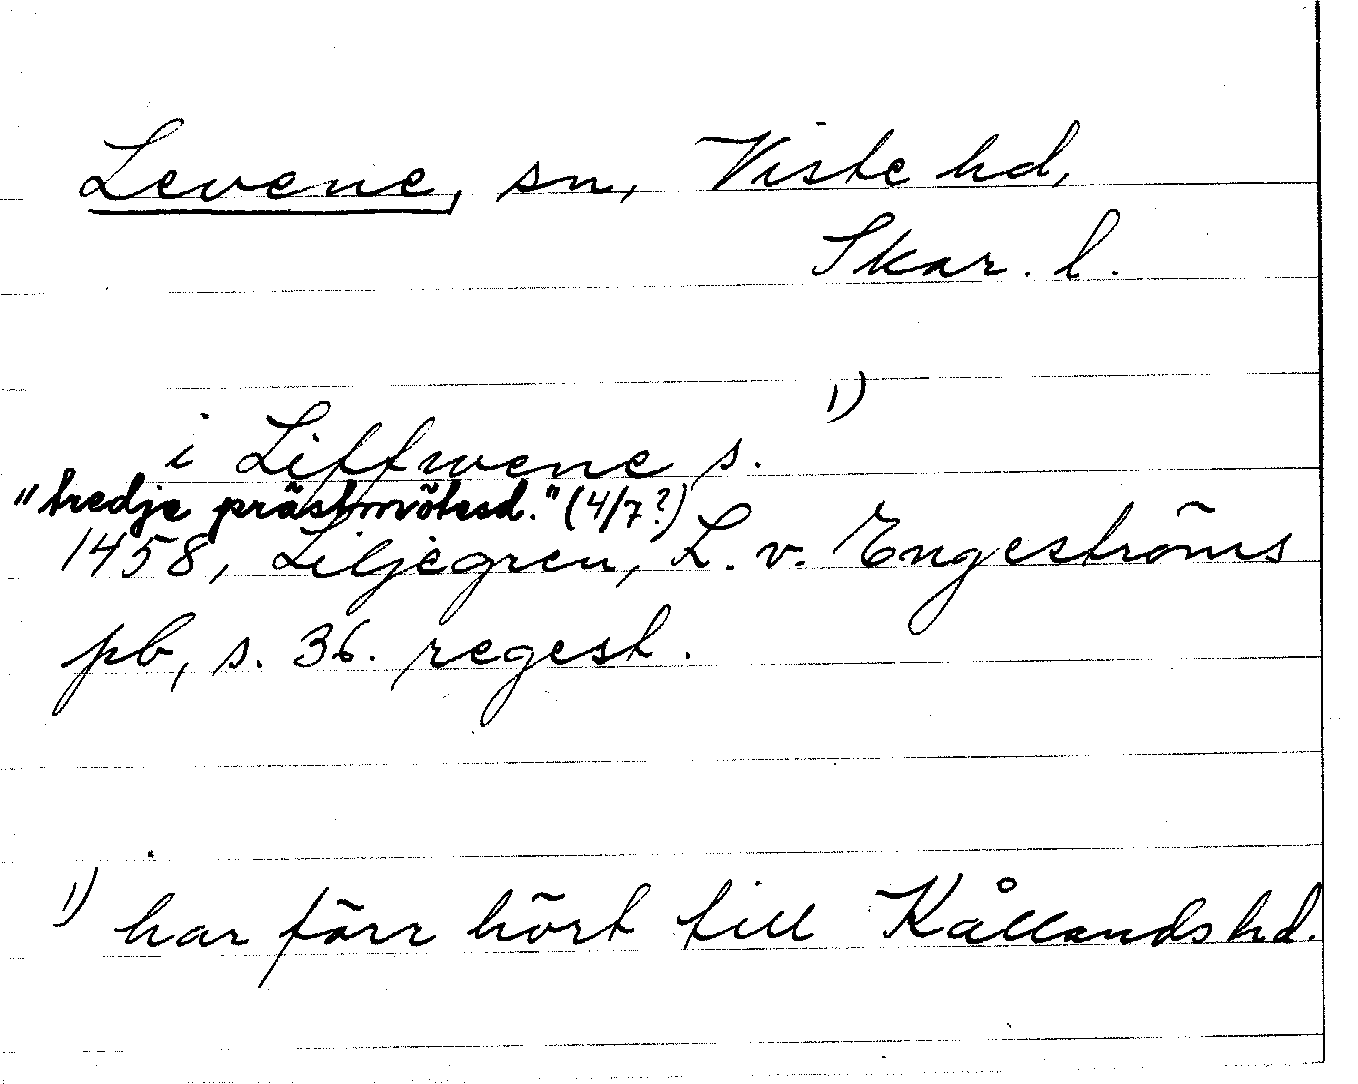 Levene, sn, Viste hd,
Skar. l.
i Liffwene s. 1)
"tredje prästmötesd." (4/7?)
1458, Liljegren, L. v. Engeströms
pb, s. 36. regest.
1) har förr hört till Kållands hd.